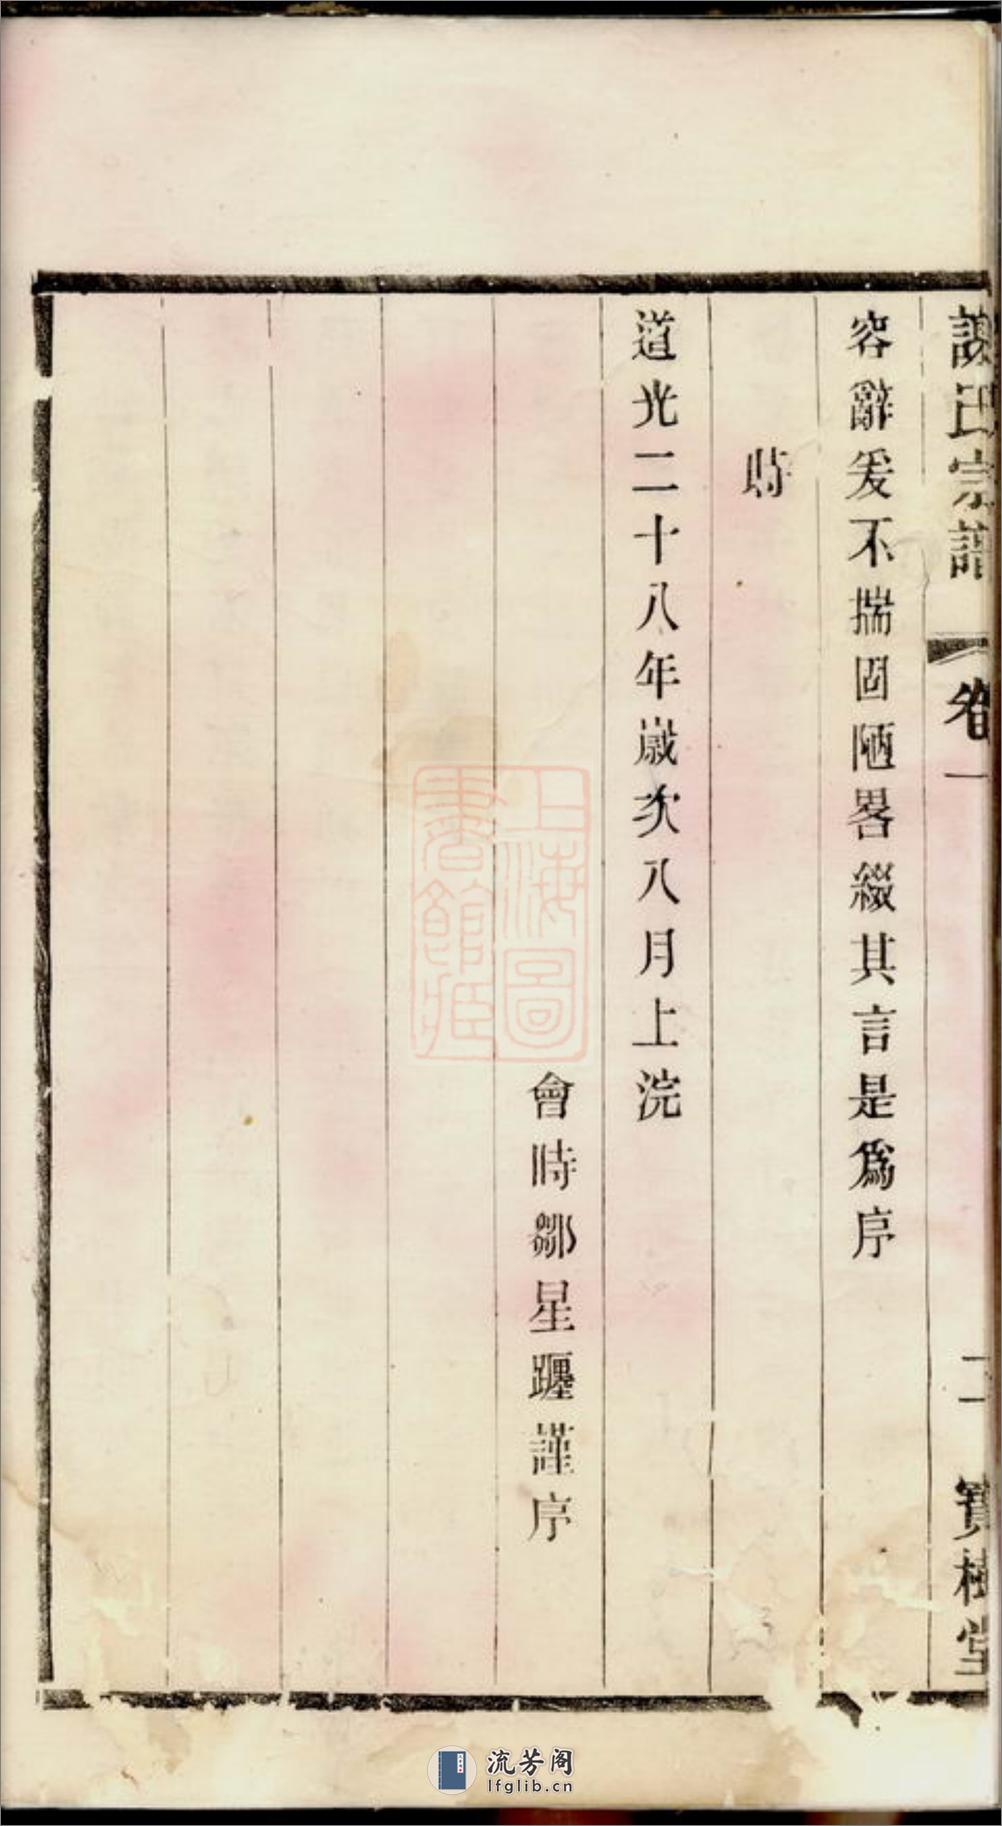 謝氏宗譜 卷一 二 寶樹堂
容辭爰不揣固陋畧綴其言是爲序
時
道光二十八年歲次八月上浣
會時鄒星躔謹序
上海圖書館藏
流芳阁
lfglib.cn